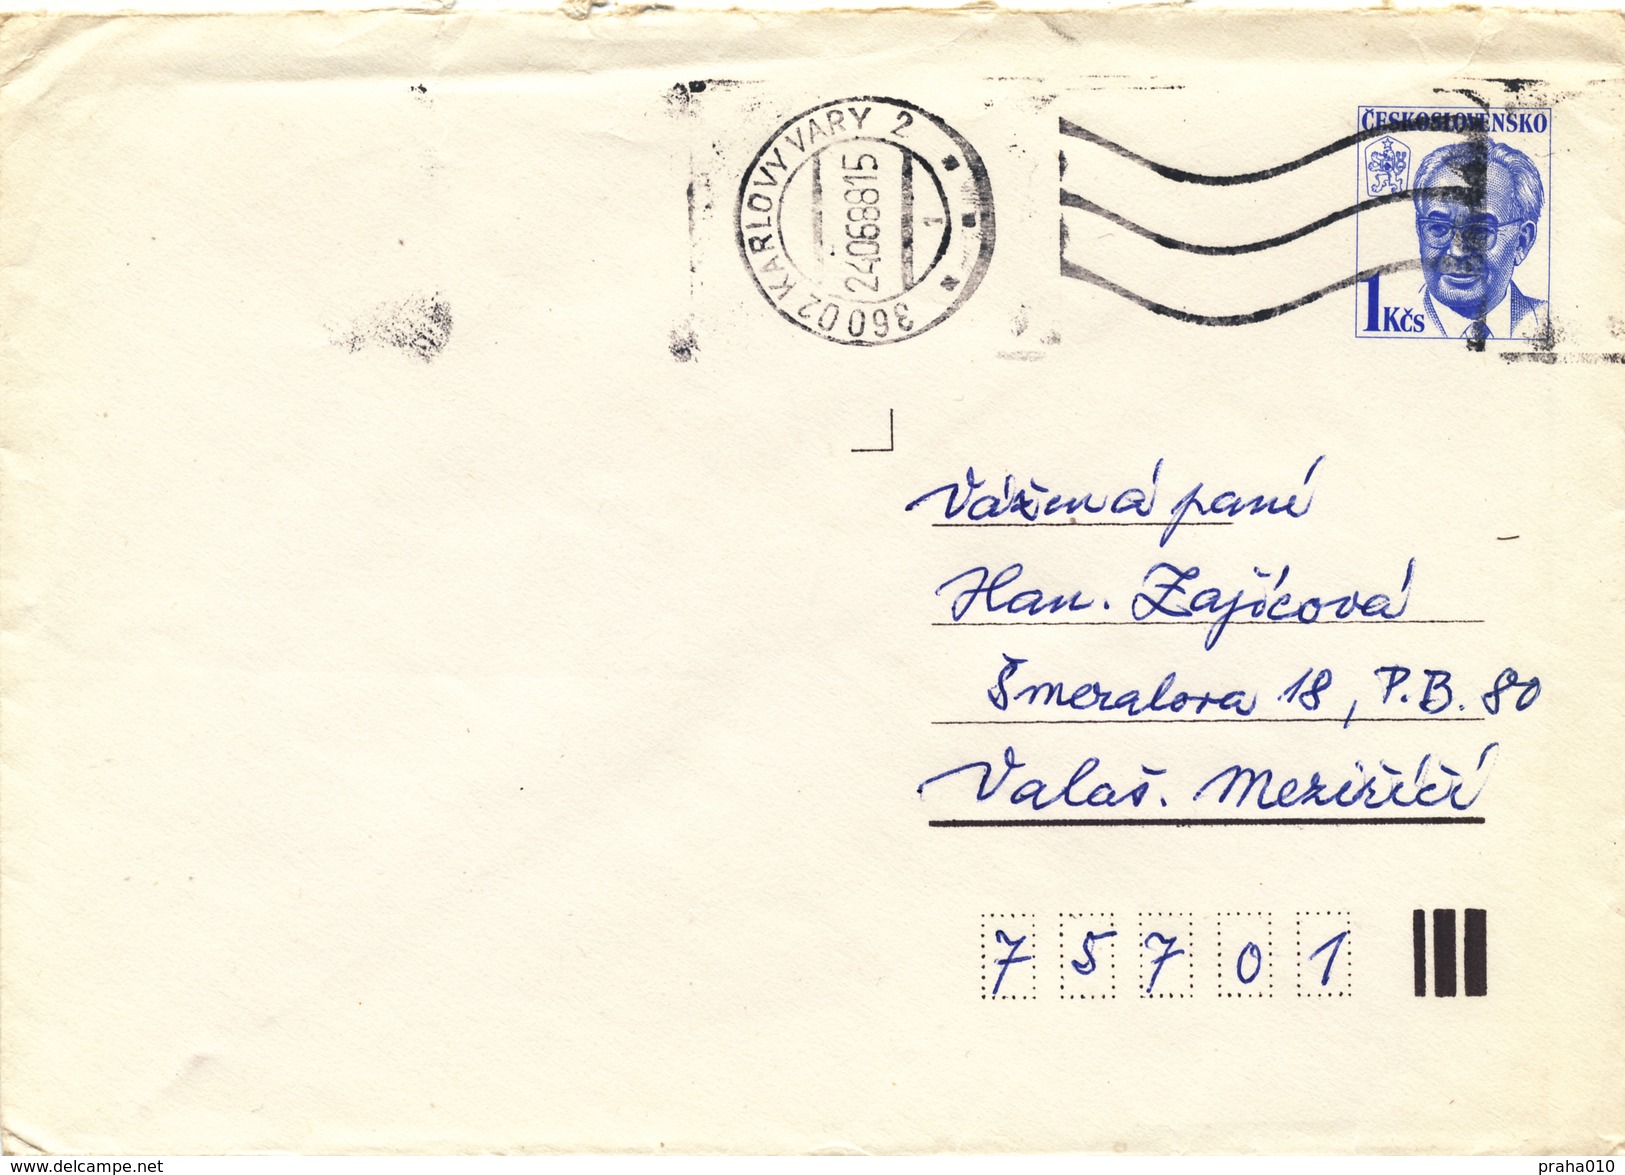 360 02 KARLOVY VARY 2
24.06.88 15
1
ČESKOSLOVENSKO
1 Kčs
Vážená paní
Han. Zajícová
Šmeralova 18, P.B. 80
Valaš. Meziříčí
7 5 7 0 1
www.delcampe.net
praha010